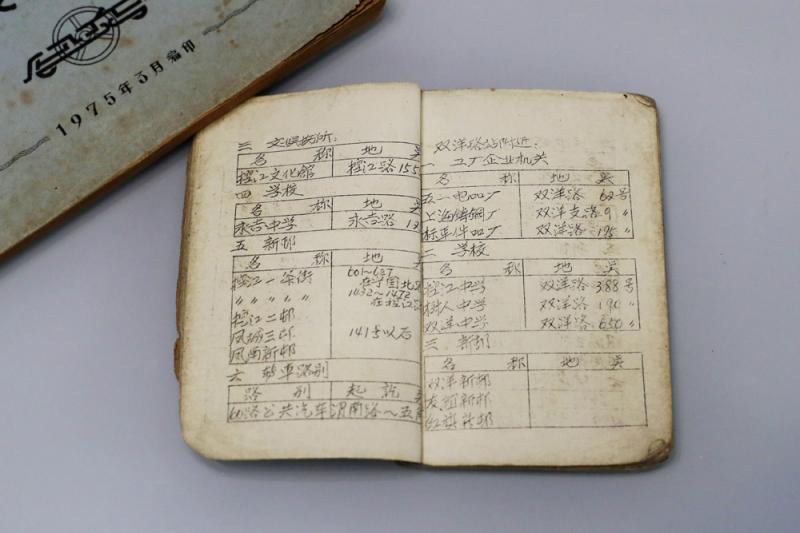 1975年3月编印
三 文娱场所:
名 称 地 点
控江文化馆 控江路155
四 学校
名 称 地
永吉中学 永吉路
五 新邨
名 称 地
控江一条街 601~627
1432~1472
〃 〃 〃 〃 〃
控江二邨
凤城三邨 1415以后
凤南新邨
六 转车路别
路 别 起 讫
60路公共汽车
双洋路站附近:
一 工厂企业机关
名 称 地 点
五一电品厂 双洋路 62号
上海铸钢厂 双洋支路9 〃
标准件四厂 双洋路 195 〃
二 学校
名 称 地 点
控江中学 双洋路 388号
树人中学 双洋路 190 〃
双洋中学 双洋路 650 〃
三 新邨
名 称 地 点
双洋新邨
友谊新邨
红旗新邨